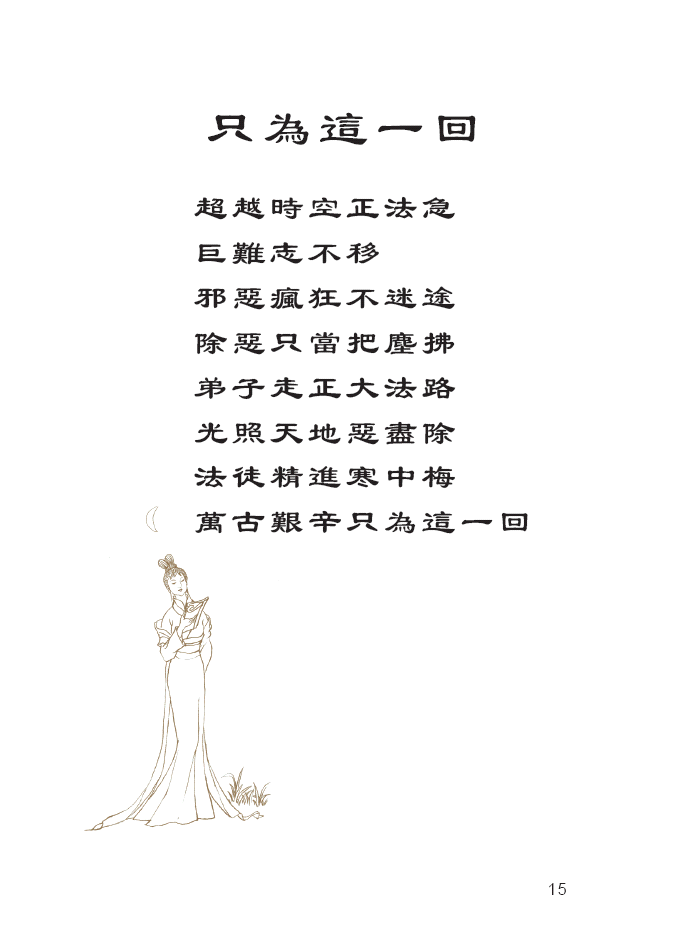 只為這一回
超越時空正法急
巨難志不移
邪惡瘋狂不迷途
除惡只當把塵拂
弟子走正大法路
光照天地惡盡除
法徒精進寒中梅
萬古艱辛只為這一回
15